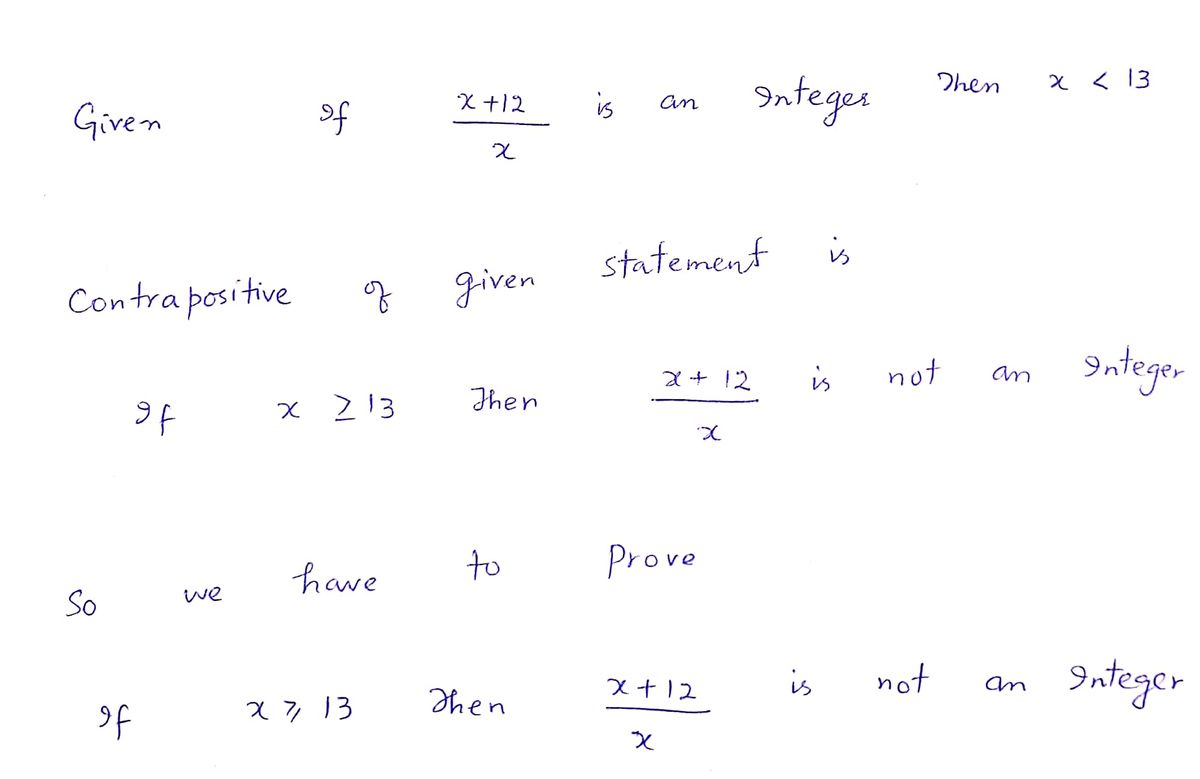 Given If x+12/x is an Integer Then x < 13
Contrapositive of given statement is
If x ≥ 13 Then x+12/x is not an Integer
So we have to Prove
If x ⩾ 13 Then x+12/x is not an Integer